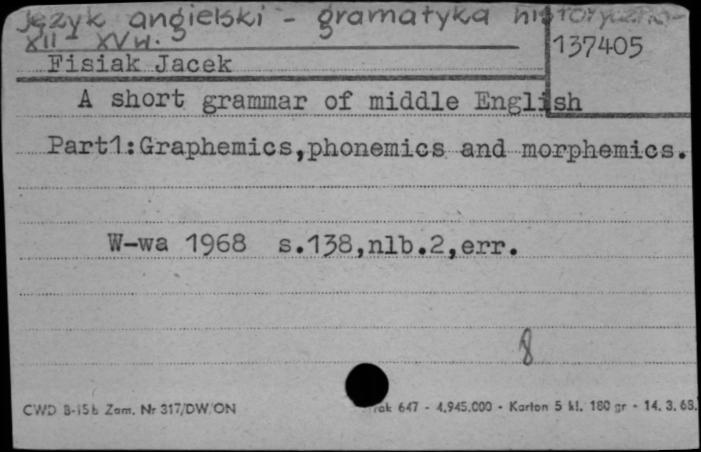 Język angielski - gramatyka historyczna-
XII - XV w.
137405
Fisiak Jacek
A short grammar of middle English
Part1:Graphemics,phonemics and morphemics.
W-wa 1968 s.138,nlb.2,err.
8
CWD B-15b Zam. Nr 317/DW/ON
rak 647 - 4.945.000 - Karton 5 kl. 180 gr - 14. 3. 68.